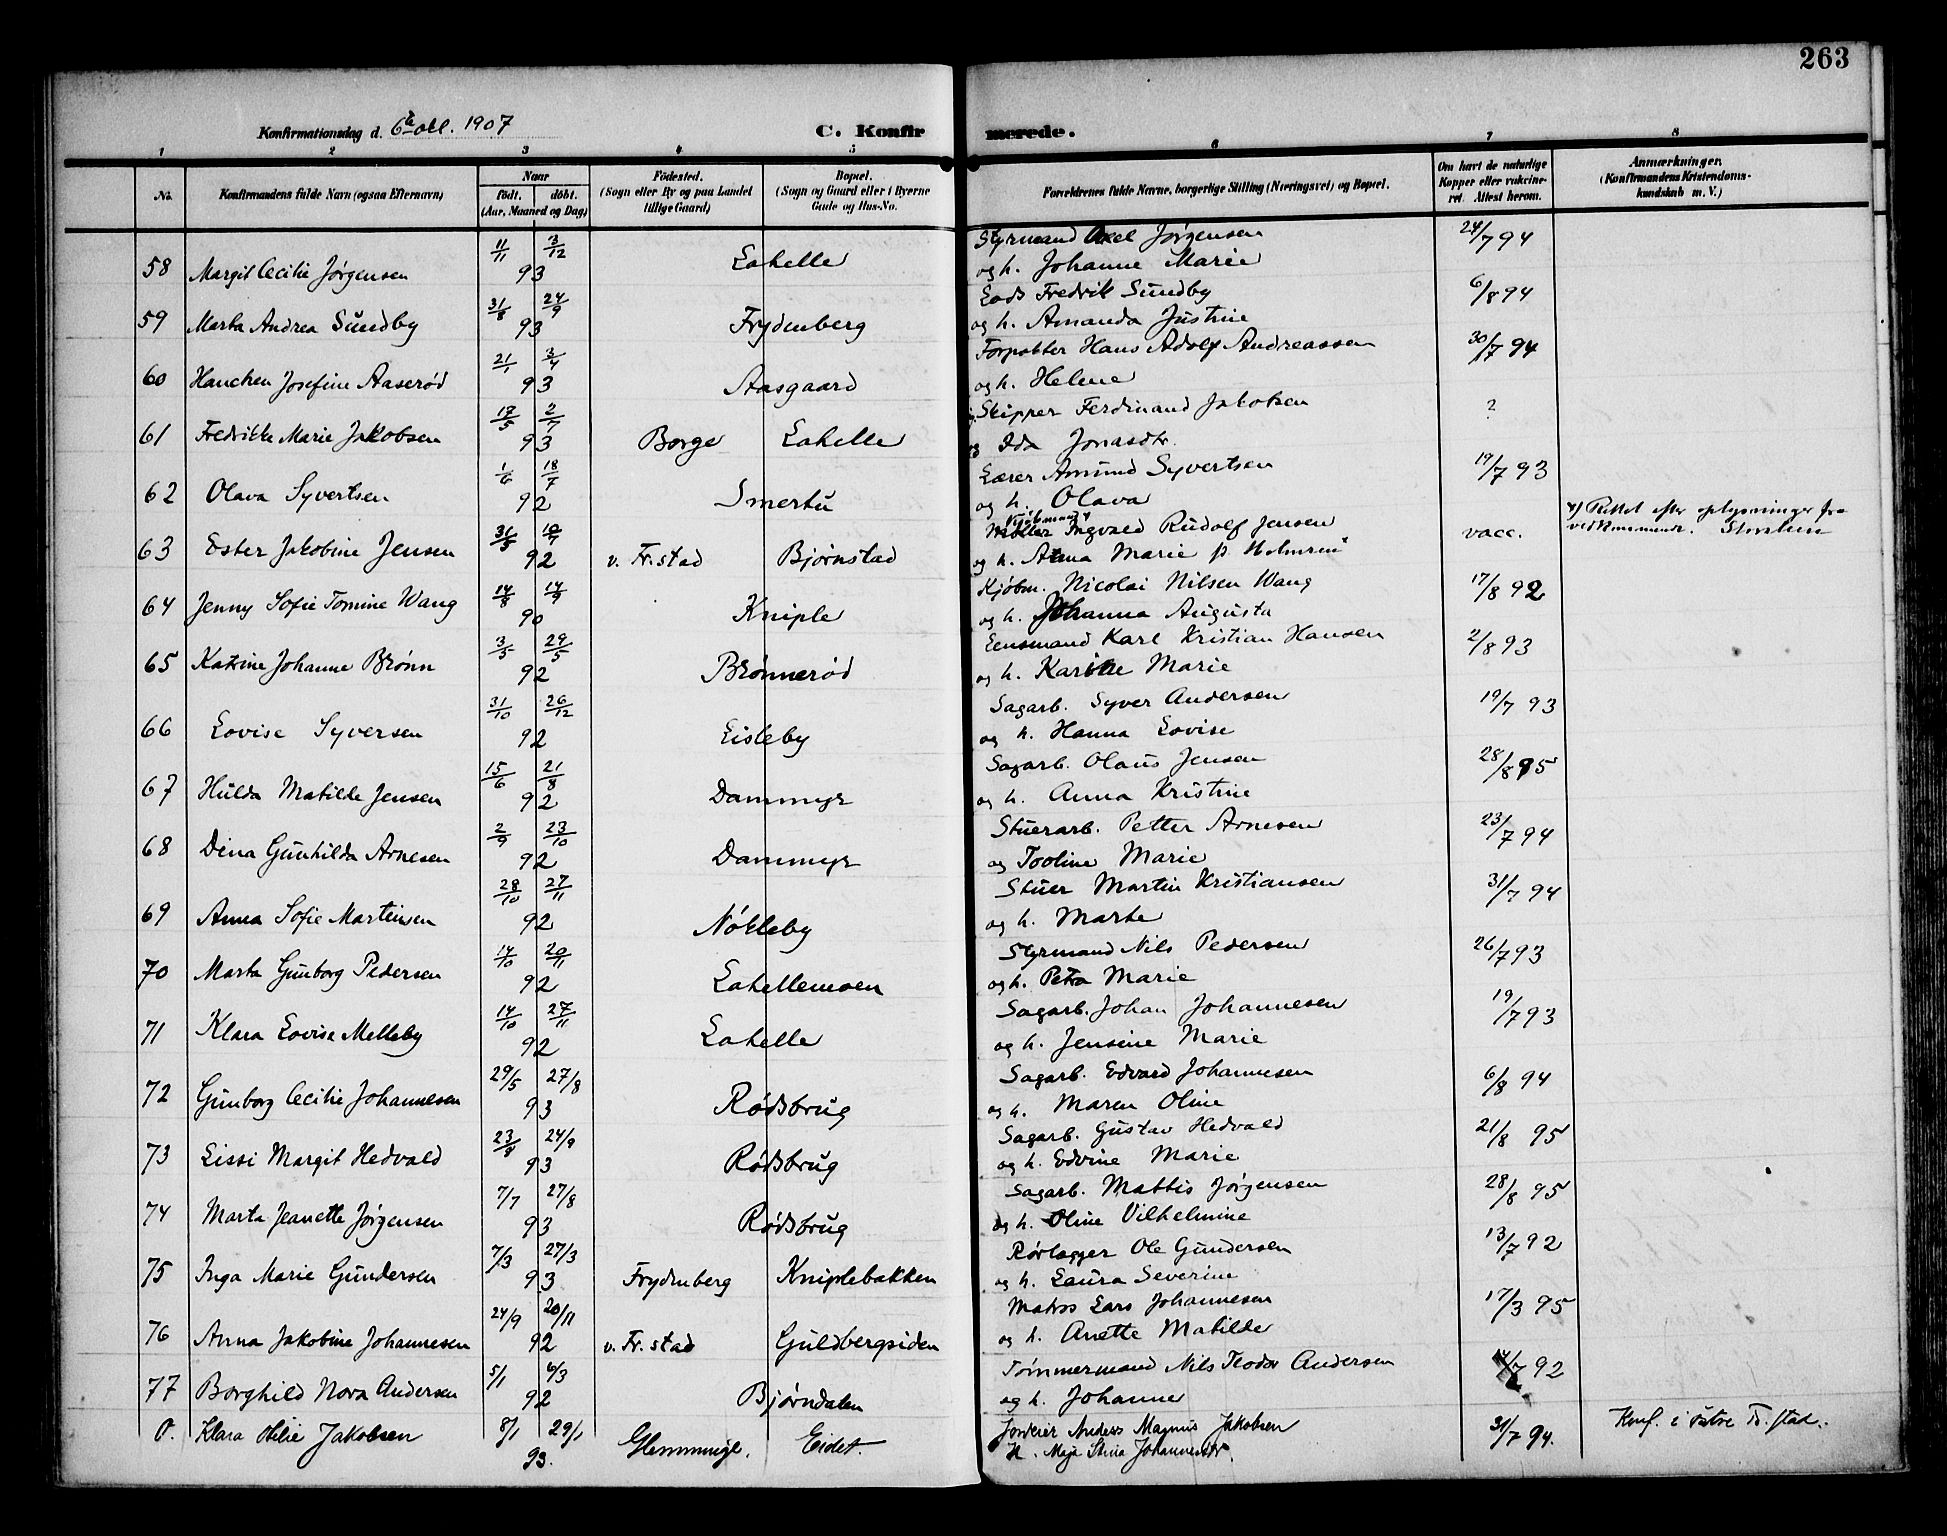 263
Konfirmationsdag d. 6te okt. 1907
C. Konfir merede.
1 2 3 4 5 6 7 8
No. Konfirmandens fulde Navn (ogsaa Efternavn) Naar født. døbt. (Aar, Maaned og Dag) Fødested. (Sogn eller By og paa Landet tillige Gaard) Bopæl. (Sogn og Gaard eller i Byerne Gade og Hus-No. Forældrenes fulde Navne, borgerlige Stilling (Næringsvei) og Bopæl. Om havt de naturlige Kopper eller vakcine-ret. Attest herom. Anmærkninger. (Konfirmandens Kristendoms-kundskab m. V.)
58 Margit Cecilie Jørgensen 11/11 3/12 93 Lahelle Styrmand Axel Jørgensen 24/7 94
og h. Johanne Marie
59 Marta Andrea Sundby 31/8 24/9 93 Frydenberg Lods Fredrik Sundby 6/8 94
og h. Amanda Justine
60 Hanchen Josefine Aaserød 21/1 3/4 93 Aasgaard Forpakter Hans Adolf Andreassen 30/7 94
og h. Helene
61 Fredrikke Marie Jakobsen 17/5 2/7 93 Borge Lahelle Skipper Ferdinand Jakobsen ?
og Ida Jonasdtr.
62 Olava Syvertsen 1/6 18/7 92 Smertu Lærer Amund Syvertsen 19/7 93
og h. Olava
63 Ester Jakobine Jensen 31/5 92 v. Fr.stad Bjørnstad Ingvald Rudolf Jensen vacc. Rettet efter oplysninger fra
og h. Anna Marie f. Holmsen vedkommende.
64 Jenny Sofie Tomine Wang 14/8 14/9 90 Kniple Kjøbm. Nicolai Nilsen Wang 17/8 92
og h. Johanna Augusta
65 Katrine Johanne Brønn 3/3 29/5 92 Brønnerød Leusmand Karl Kristian Hansen 2/8 93
og h. Karine Marie
66 Lovise Syversen 31/10 26/12 92 Lisleby Sagarb. Syver Andersen 19/7 93
og h. Hanna Lovise
67 Hulda Matilde Jensen 15/6 21/8 92 Dammyr Sagarb. Olaus Jensen 28/8 95
og h. Anna Kristine
68 Dina Gunhilda Arnesen 2/9 23/10 92 Dammyr Stuerarb. Petter Arnesen 23/7 94
og Tooline Marie
69 Anna Sofie Martinsen 28/10 27/11 92 Nøkleby Stuer Martin Kristiansen 31/7 94
og h. Marte
70 Marta Gunborg Pedersen 14/10 20/11 92 Lahellemoen Styrmand Nils Pedersen 26/7 93
og h. Petra Marie
71 Klara Lovise Melleby 14/10 27/11 92 Lahelle Sagarb. Johan Johannesen 19/7 93
og h. Jensine Marie
72 Gunborg Cecilie Johannesen 29/5 27/8 93 Rødsbrug Sagarb. Edvard Johannesen 6/8 94
og h. Maren Oline
73 Lissi Margit Hedvald 23/4 24/9 93 Rødsbrug Sagarb. Gustav Hedvald 21/8 95
og h. Edvine Marie
74 Marta Jeanette Jørgensen 7/7 27/8 93 Rødsbrug Sagarb. Mattis Jørgensen 28/8 95
og h. Oline Vilhelmine
75 Inga Marie Gundersen 7/3 27/3 93 Frydenberg Kniplebakken Rørlægger Ole Gundersen 13/7 92
og h. Laura Severine
76 Anna Jakobine Johannesen 24/9 20/11 92 v. Fr.stad Guldbergsiden Matros Lars Johannesen 17/3 95
og h. Anette Matilde
77 Borghild Nora Andersen 5/1 6/3 92 Bjørndalen Tømmermand Nils Teodor Andersen 92
og h. Johanne
0. Klara Otilie Jakobsen 8/1 29/1 93. Glemminge. Eidet. Jordeier Anders Magnus Jakobsen 31/7 94. Konf. i østre Fr.stad.
H. Maja Stina Johannesdtr.